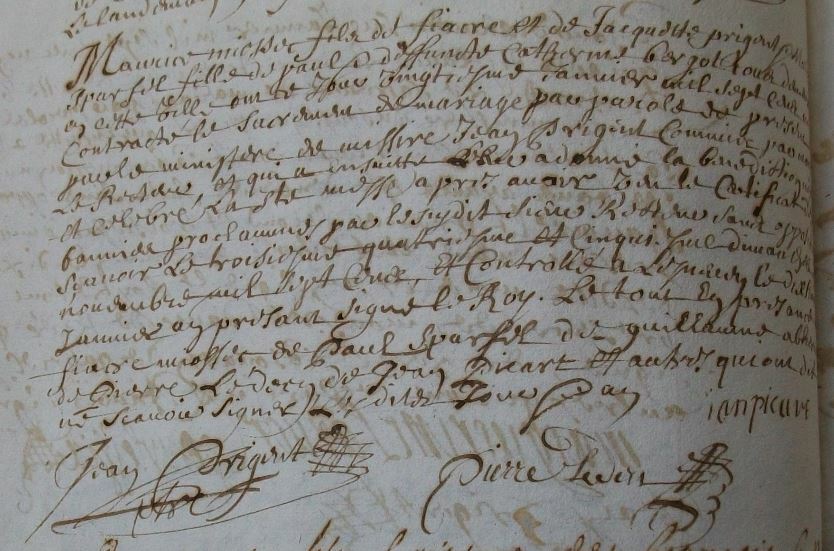 Maurice miossec fils de fiacre et de Jacquette prigent
sparfel fille de paul et deffuncte Catherine bergot
en cette ville ont ce Jour vingtiesme Janvier mil sept Cent
Contracté le sacrement de mariage par parole de present
par le ministere de missire Jean Prigent Commis par
Le Recteur, et qui a ensuitte donné la benediction
et celebré La ste messe apres avoir veu le Certificat
bannies proclammés par le susdit sieur Recteur sans
scavoir Le troisiesme quatriesme et cinquiesme dimanche
novembre mil sept Cent, et Controllé a Lesneven le
Janvier an present signé le Roy. Le tout En presance
fiacre miossec de Paul sparfel de guillaume
de Pierre Le deon de Jean Picart et autres qui ont dit
ne scavoir signer Lesdits Jour et an
ian picart
Jean Prigent
ptre
pierre Le deon